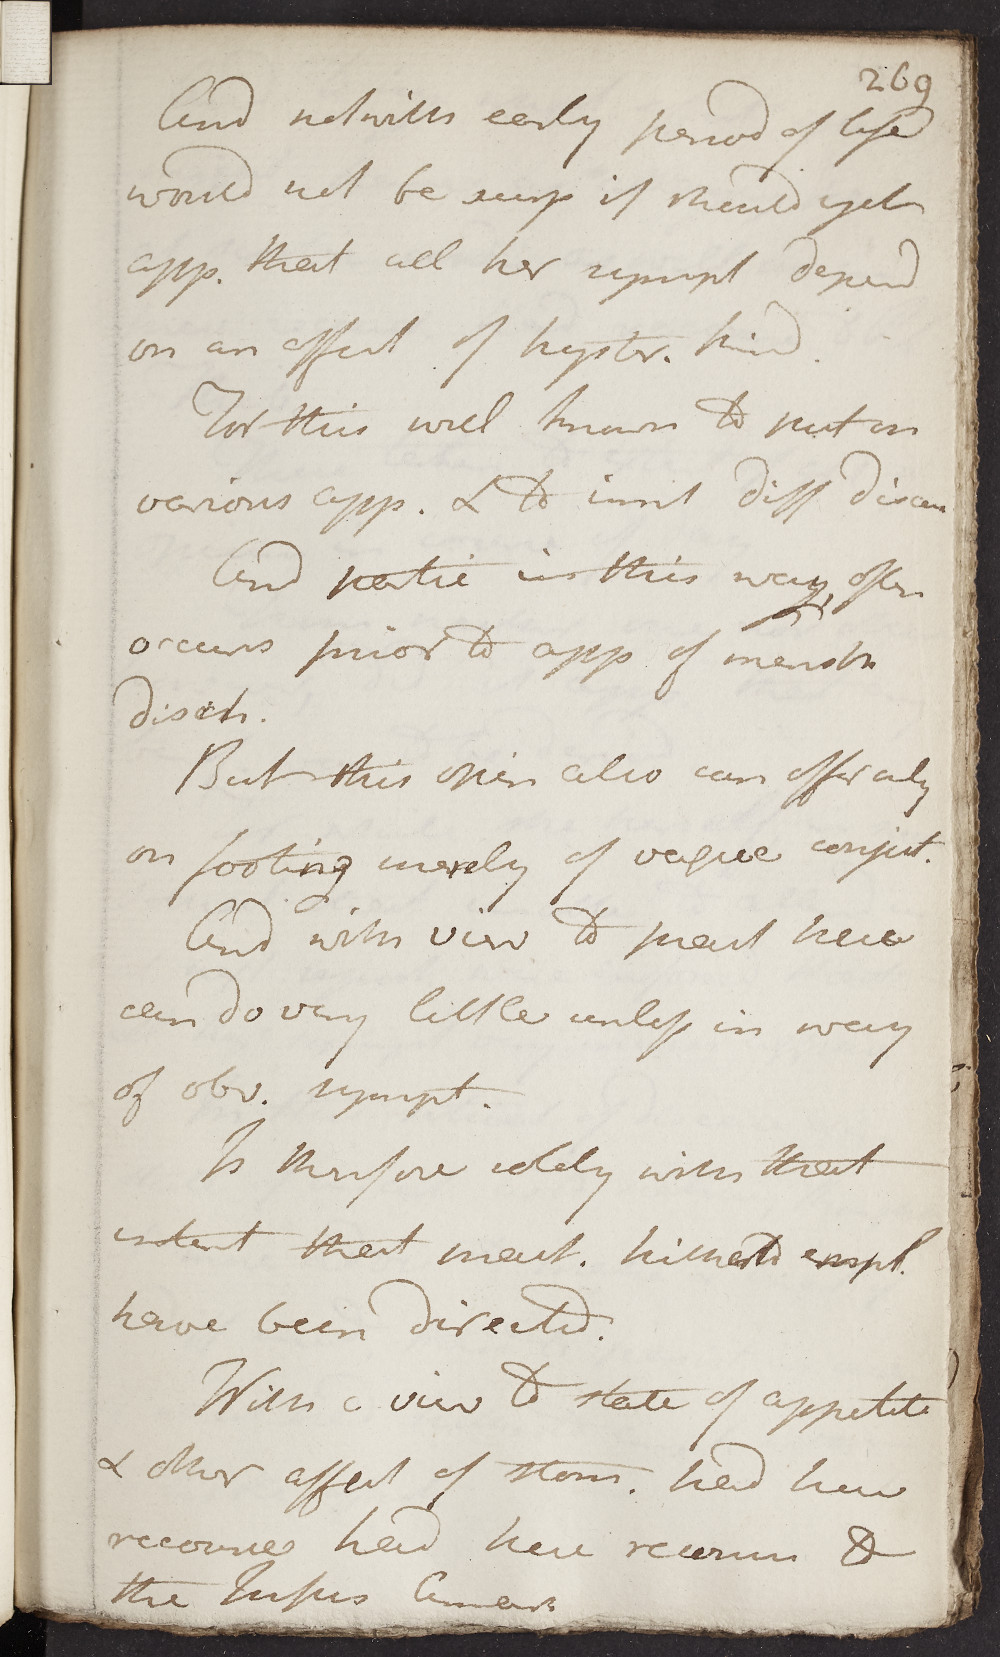 269
And notwith early period of life
would not be surp if should yet
app. that all her sympt depend
on an affect of hyster. kind.
For this well known to put on
various app. & to imit diff diseas
And partic in this way, often
occurs prior to app of menstr
disch.
But this opin also can offer only
on footing merely of vague conject.
And with view to pract here
can do very little unless in way
of obv. sympt.
Is therefore solely with that
intent that meas. hitherto empl.
have been directed.
With a view to state of appetite
& other affect of stom. had here
recourse had here recours to
the Infus Amar